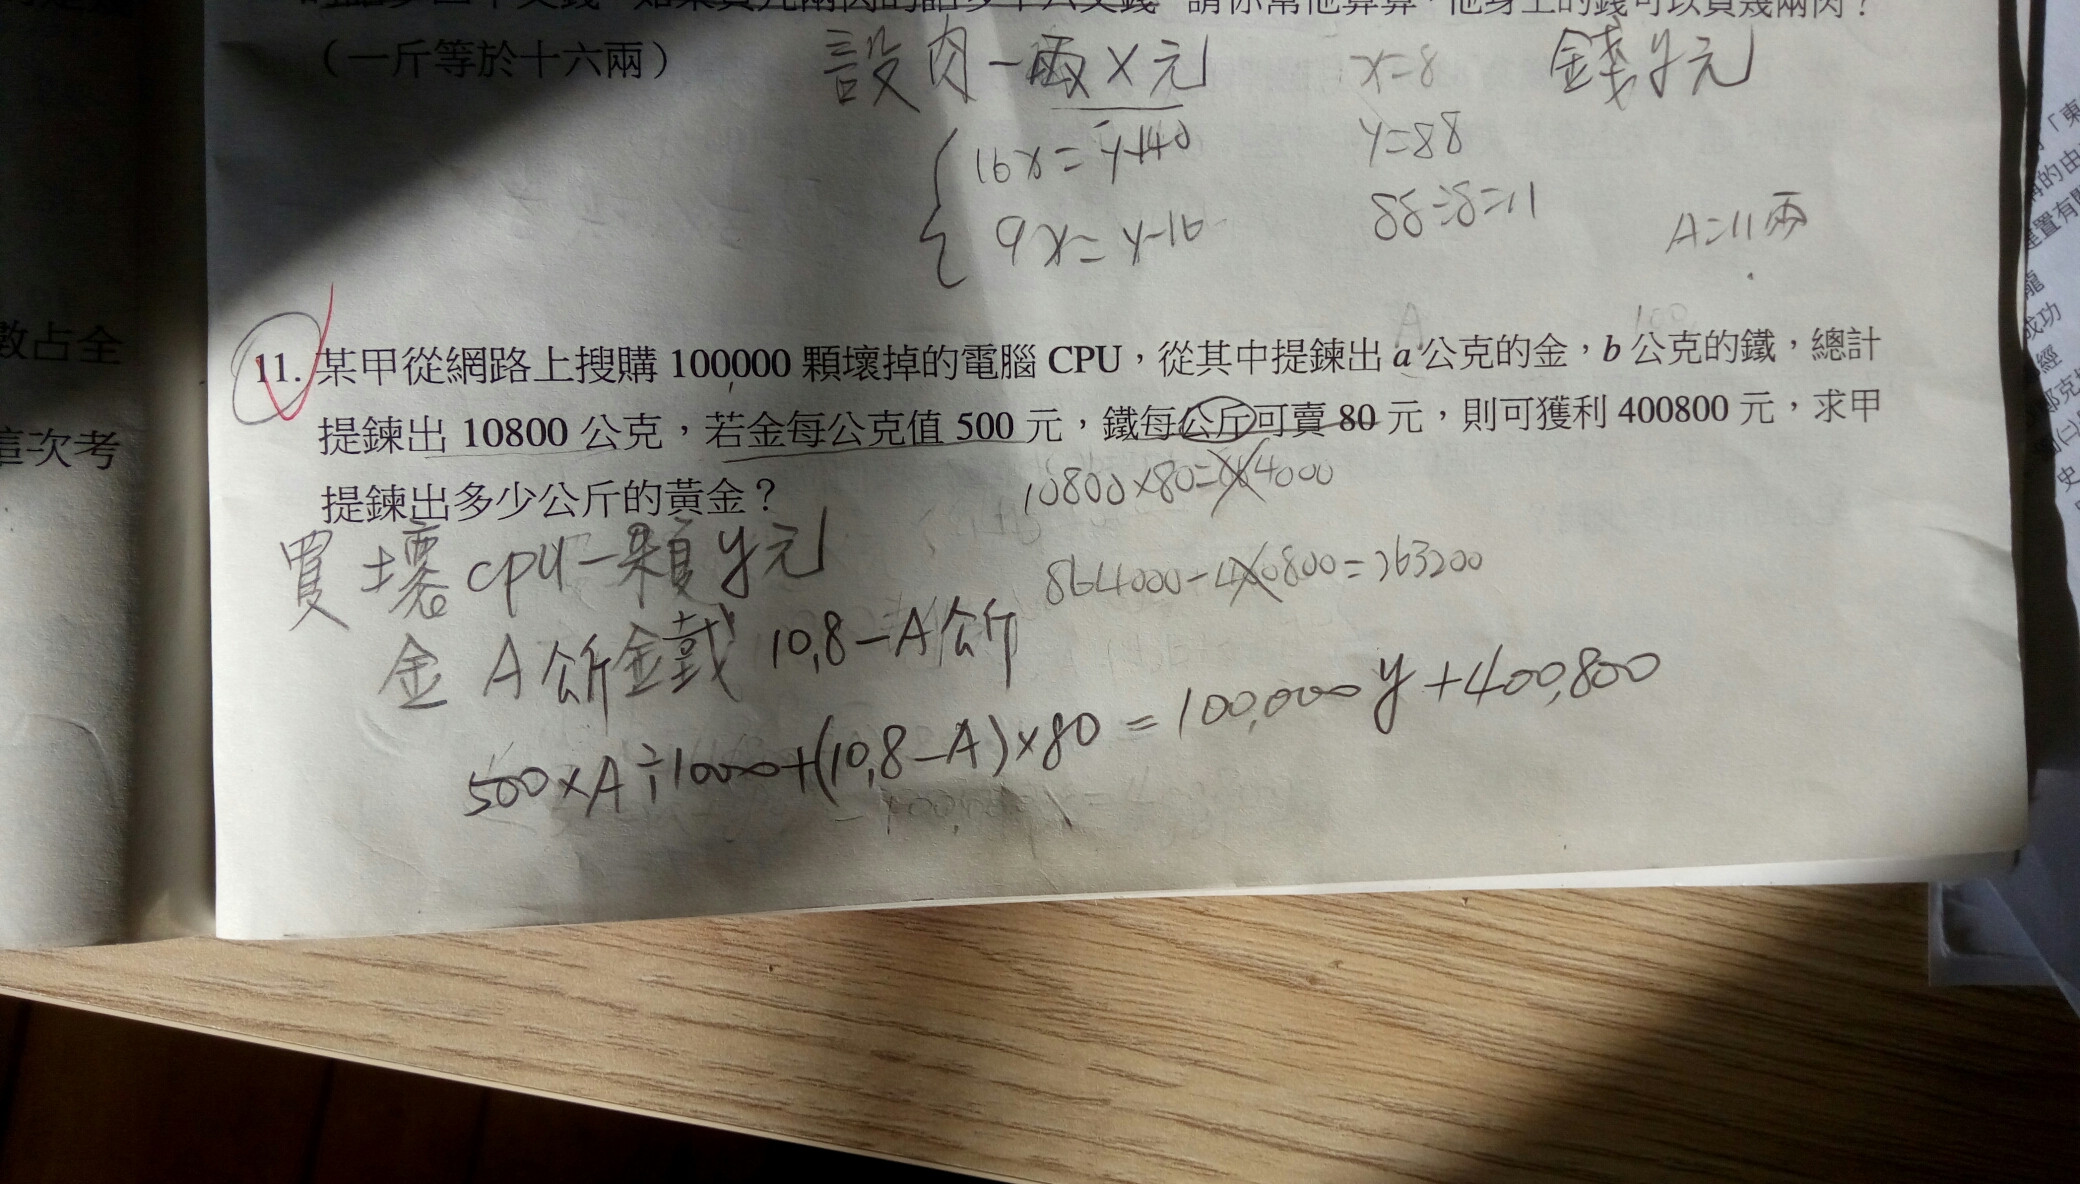 （一斤等於十六兩）
設肉一兩X元
x=8
錢y元
16x=y+40
y=88
9x=y-16
88÷8=11
A=11兩
11. 某甲從網路上搜購 100000 顆壞掉的電腦 CPU，從其中提鍊出 a 公克的金，b 公克的鐵，總計
提鍊出 10800 公克，若金每公克值 500 元，鐵每公斤可賣 80 元，則可獲利 400800 元，求甲
提鍊出多少公斤的黃金？
10800×80=864000
買壞cpu一顆y元
864000-400800=263200
金A公斤鐵10.8-A公斤
500×A÷1000+(10.8-A)×80=100,000y+400,800
數占全
這次考